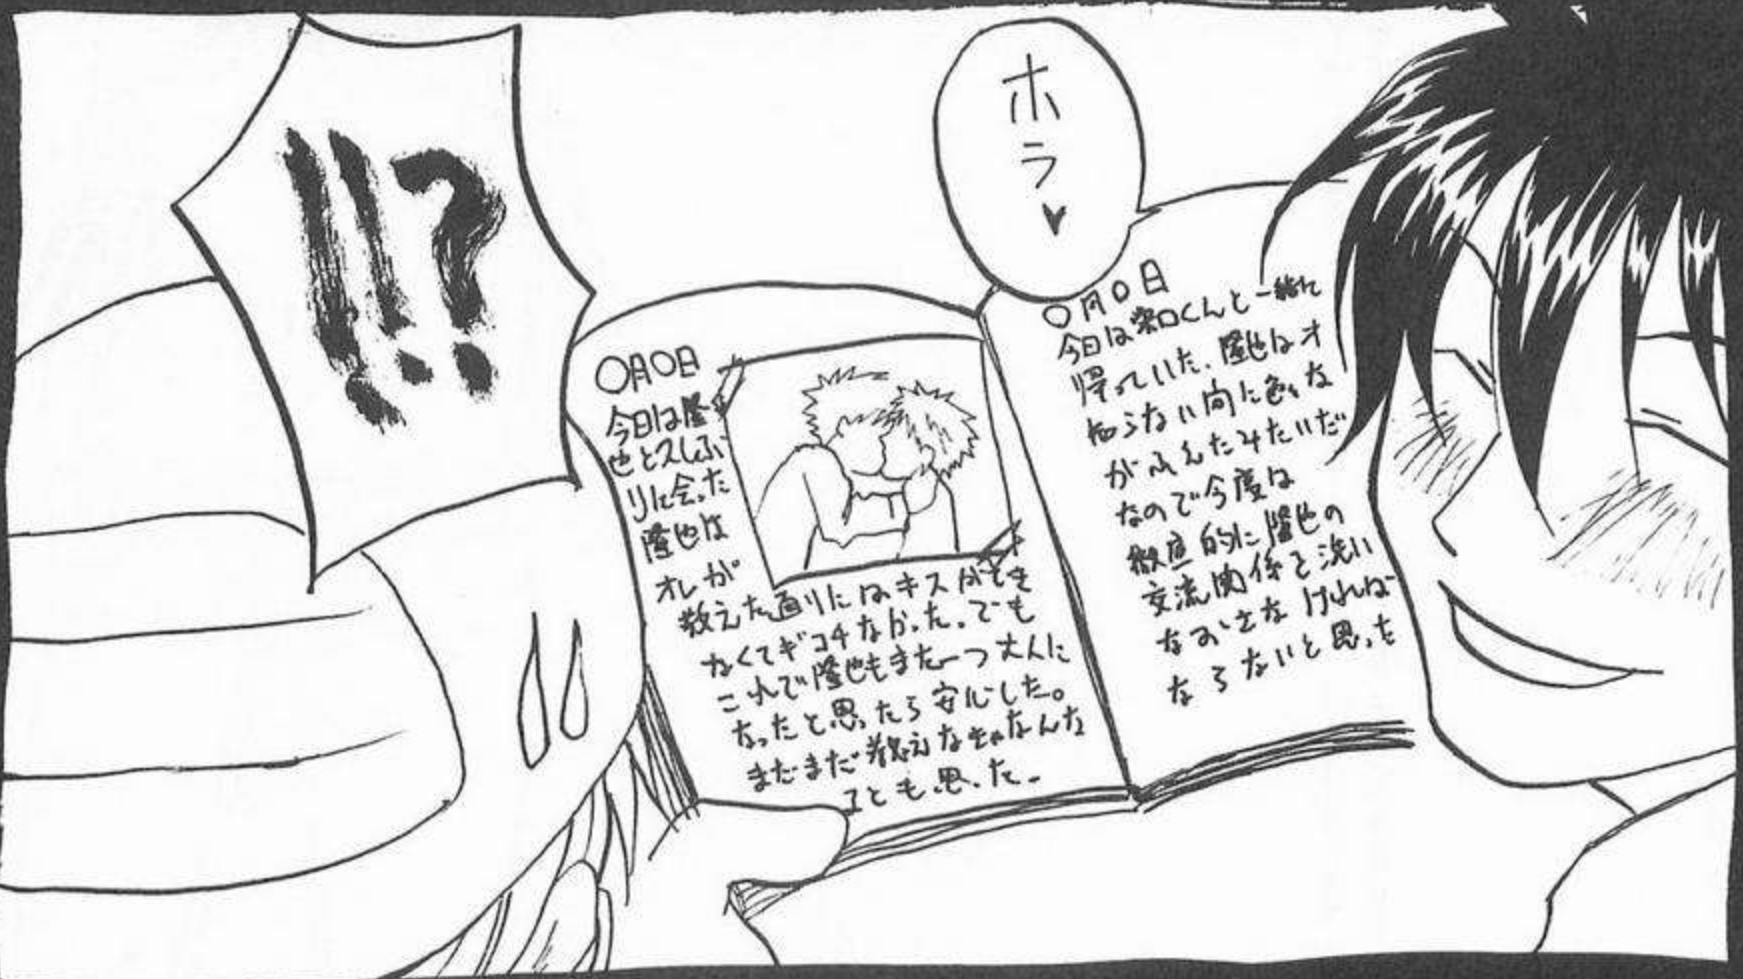 ホラ♥
!!?
〇月〇日
今日は隆
也と久しぶ
りに会った
隆也は
オレが
教えた通りにはキスができ
なくてギコチなかった。でも
これで隆也もまた一つ大人に
なったと思ったら安心した。
まだまだ教えなきゃなんな
いとも思った。
〇月〇日
今日は くんと一緒に
帰っていた。隆也はオ
知らない間に色々な
がふえたみたいだ
なので今度は
徹底的に隆也の
交流関係を洗い
なおさなければ
ならないと思った